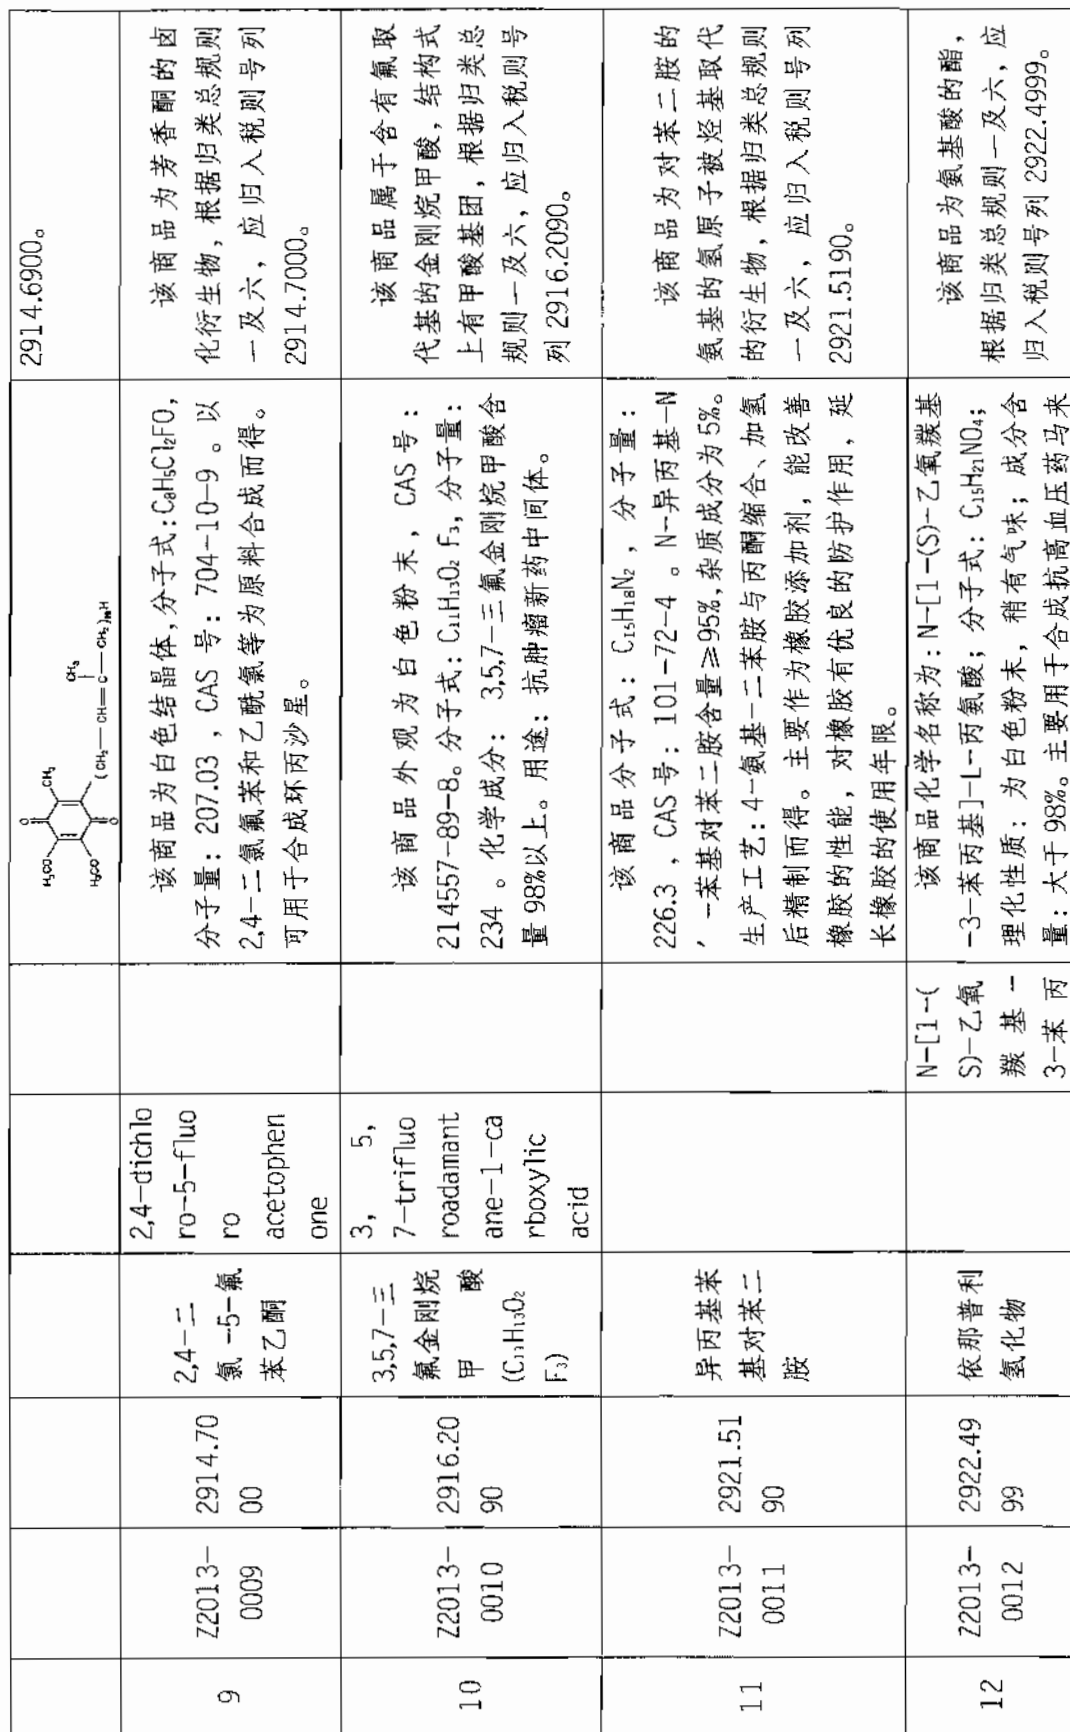 H₃CO
H₃CO
O
O
CH₃
(CH₂—CH=C—CH₂)₁₀H
CH₃
2914.6900。
9
Z2013-
0009
2914.70
00
2,4-二
氯-5-氟
苯乙酮
2,4-dichlo
ro-5-fluo
ro
acetophen
one
该商品为白色结晶体,分子式:C₈H₅Cl₂FO,
分子量: 207.03 , CAS 号: 704-10-9 。以
2,4-二氯氟苯和乙酰氯等为原料合成而得。
可用于合成环丙沙星。
该商品为芳香酮的卤
化衍生物, 根据归类总规则
一及六, 应归入税则号列
2914.7000。
10
Z2013-
0010
2916.20
90
3,5,7-三
氟金刚烷
甲 酸
(C₁₁H₁₃O₂
F₃)
3, 5,
7-trifluo
roadamant
ane-1-ca
rboxylic
acid
该商品外观为白色粉末, CAS 号:
214557-89-8。分子式: C₁₁H₁₃O₂ F₃, 分子量:
234 。化学成分: 3,5,7-三氟金刚烷甲酸含
量 98%以上。用途: 抗肿瘤新药中间体。
该商品属于含有氟取
代基的金刚烷甲酸, 结构式
上有甲酸基团, 根据归类总
规则一及六, 应归入税则号
列 2916.2090。
11
Z2013-
0011
2921.51
90
异丙基苯
基对苯二
胺
该商品分子式: C₁₅H₁₈N₂ , 分子量:
226.3 , CAS 号: 101-72-4 。N-异丙基-N
′ -苯基对苯二胺含量≥95%,杂质成分为 5%。
生产工艺: 4-氨基-二苯胺与丙酮缩合、加氢
后精制而得。主要作为橡胶添加剂, 能改善
橡胶的性能, 对橡胶有优良的防护作用, 延
长橡胶的使用年限。
该商品为对苯二胺的
氨基的氢原子被烃基取代
的衍生物, 根据归类总规则
一及六, 应归入税则号列
2921.5190。
12
Z2013-
0012
2922.49
99
依那普利
氢化物
N-[1-(
S)-乙氧
羰基-
3-苯丙
该商品化学名称为: N-[1-(S)-乙氧羰基
-3-苯丙基]-L-丙氨酸; 分子式: C₁₅H₂₁NO₄;
理化性质: 为白色粉末, 稍有气味; 成分含
量: 大于 98%。主要用于合成抗高血压药马来
该商品为氨基酸的酯,
根据归类总规则一及六, 应
归入税则号列 2922.4999。